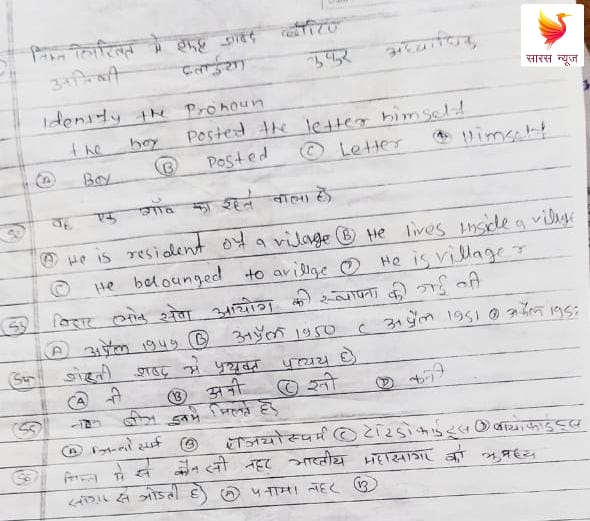 सारस न्यूज
निम्न लिखित में शुद्ध शब्द
अतिथी कुकुर अध्याधिक
Identify the Pronoun
the boy Posted the letter himself
(A) Boy (B) Posted (C) Letter (D) Himself
वह एक गाँव का रहने वाला है
(A) He is resident of a vilage (B) He lives inside a village
(C) He belounged to a villge (D) He is villager
53 बिहार लोक सेवा आयोग की स्थापना की गई थी
(A) अप्रैल 1949 (B) अप्रैल 1950 C अप्रैल 1951 (D) अप्रैल
54 शब्द में प्रयुक्त प्रत्यय है
(A) ती (B) अती (C) (D)
55 नग्न बीज इनमें मिलते है
(A) (B) एंजियोस्पर्म (C) (D)
56 निम्न में से कौन सी नहर भारतीय महासागर को भुमध्य
सागर से जोडती है (A) पनामा नहर (B)